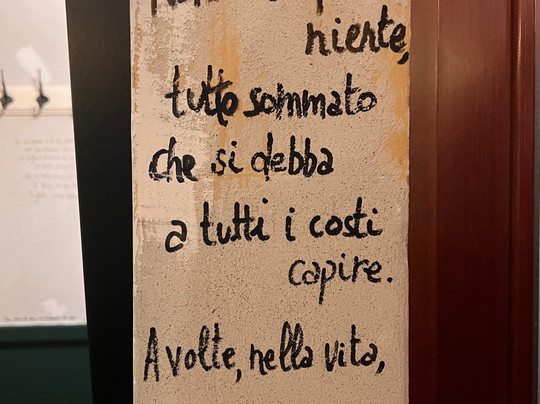 niente,
tutto sommato
che si debba
a tutti i costi
capire.
A volte, nella vita,